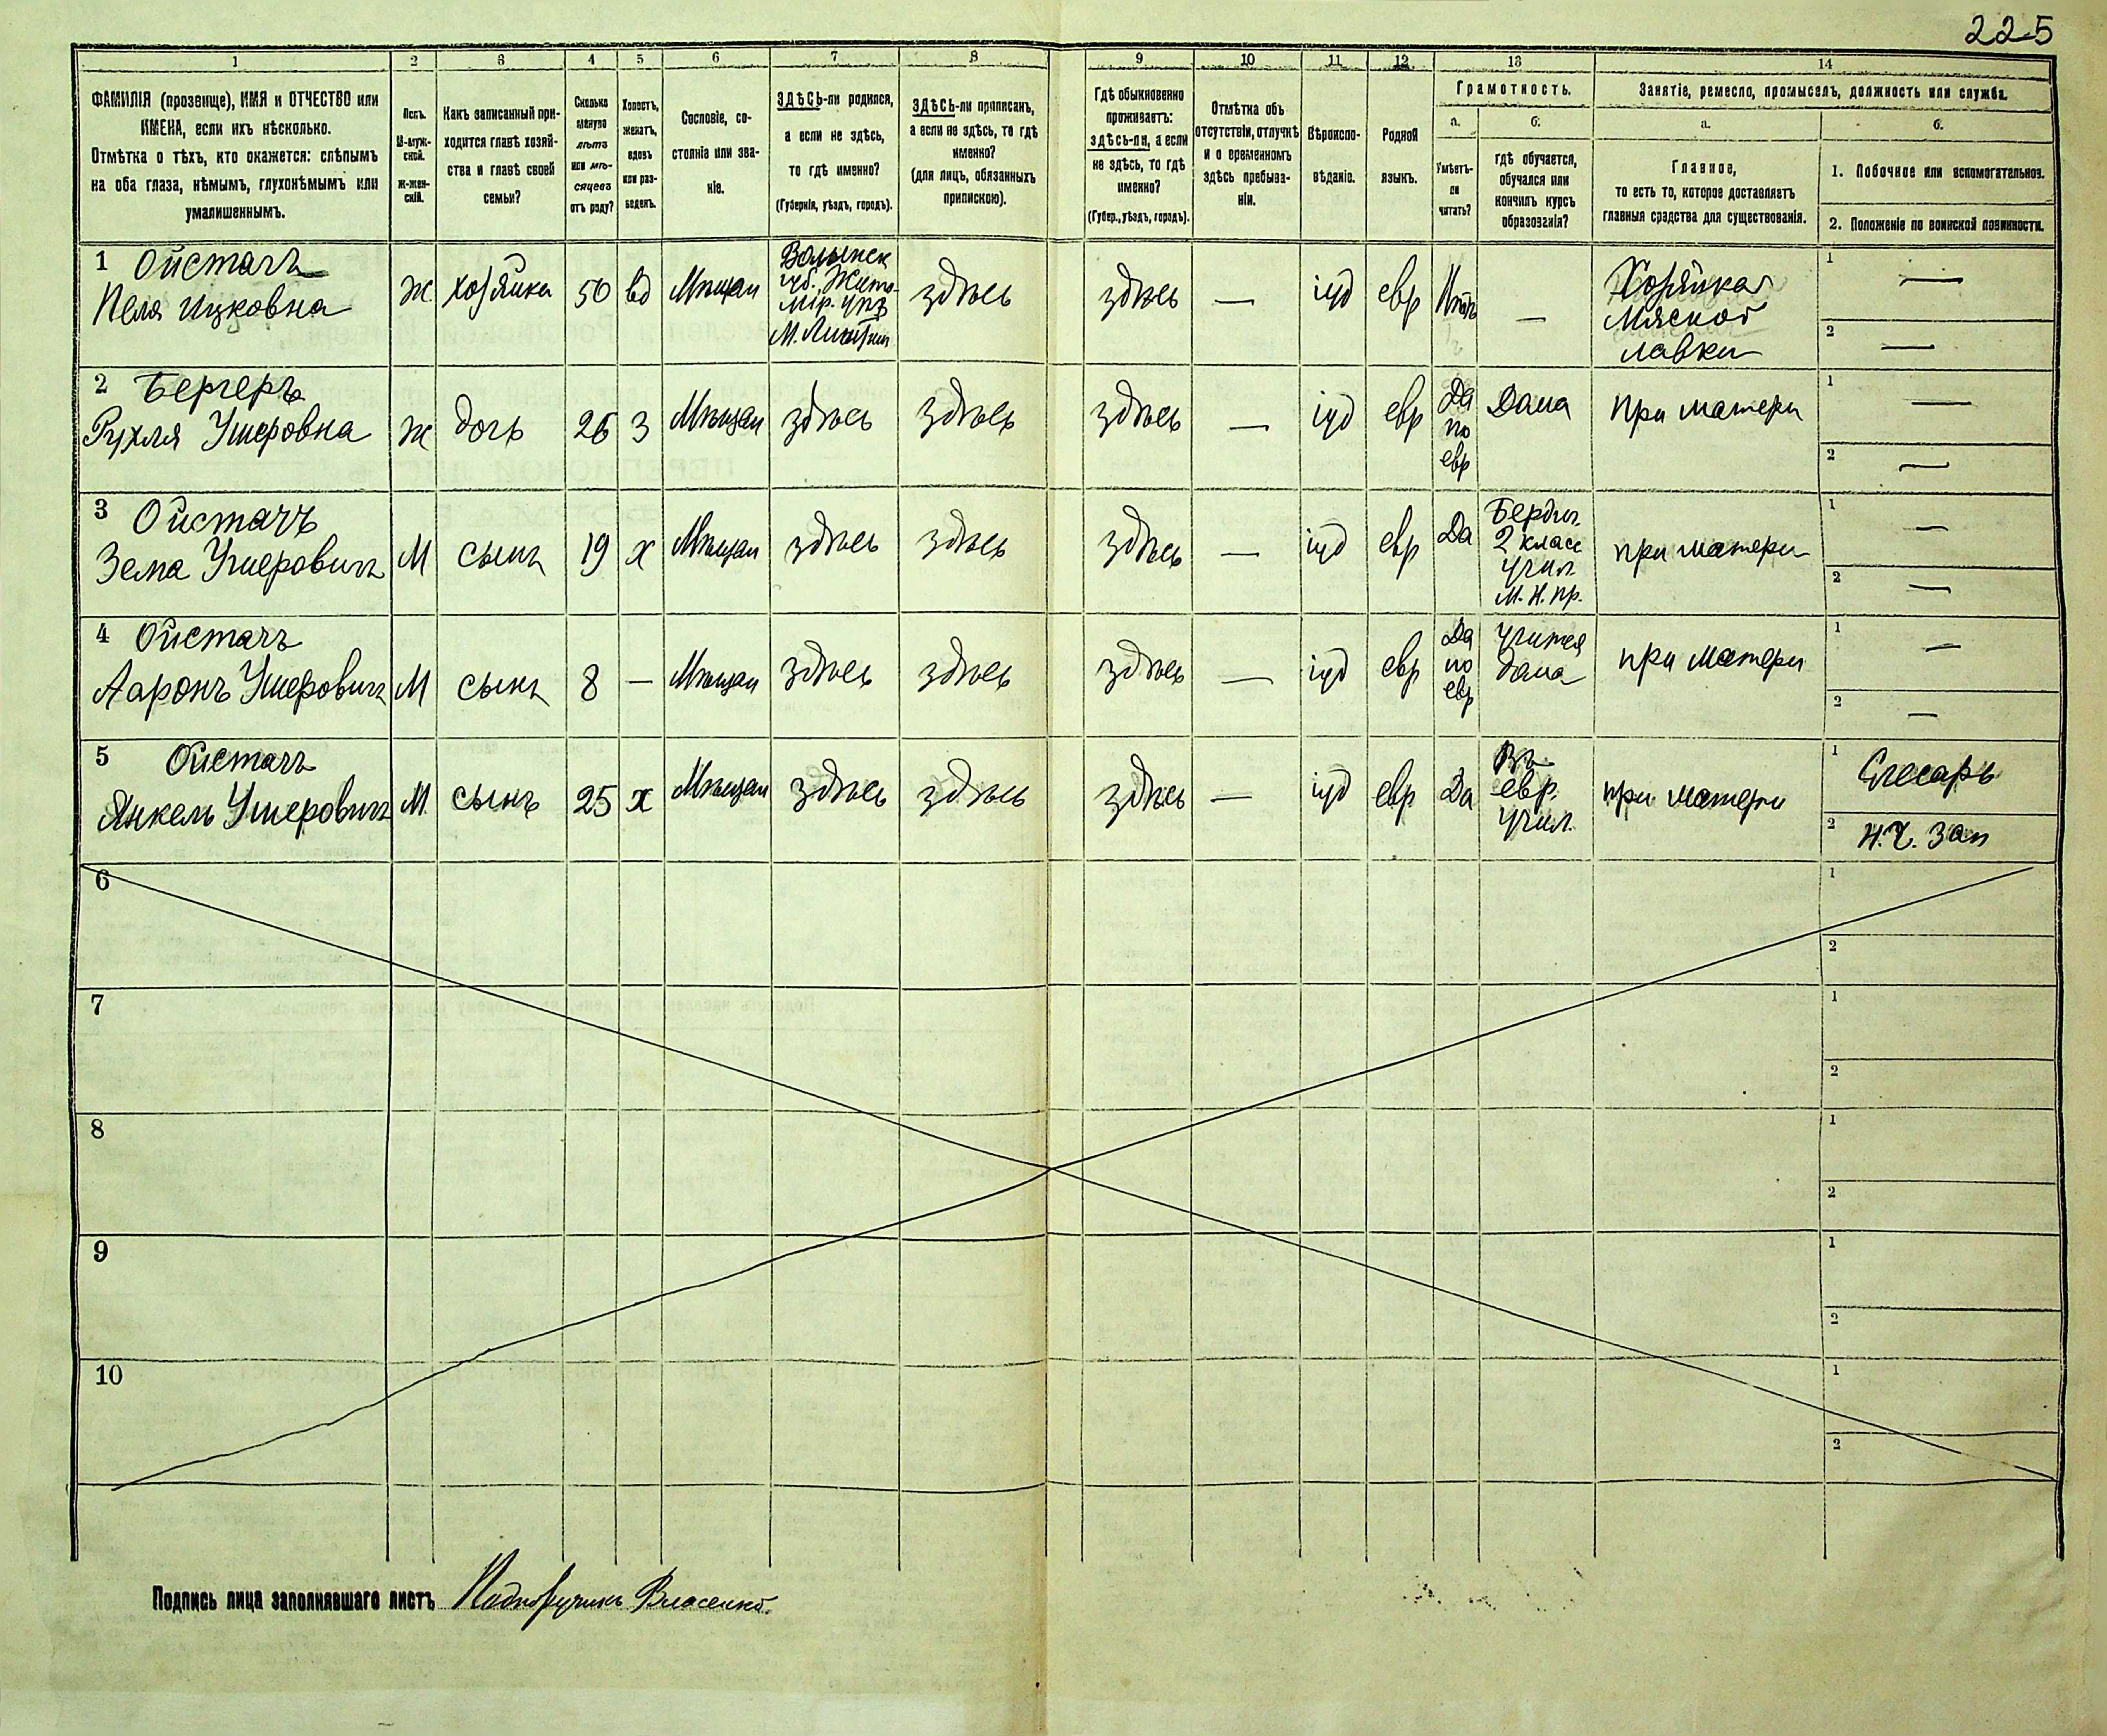 225
1 2 3 4 5 6 7 8 9 10 11 12 13 14
ФАМИЛІЯ (прозвище), ИМЯ и ОТЧЕСТВО или
ИМЕНА, если ихъ нѣсколько.
Отмѣтка о тѣхъ, кто окажется: слѣпымъ
на оба глаза, нѣмымъ, глухонѣмымъ или
умалишеннымъ.
Полъ.
М-муж-
ской.
ж-жен-
скій.
Какъ записанный при-
ходится главѣ хозяй-
ства и главѣ своей
семьи?
Сколько
минуло
лѣтъ
или мѣ-
сяцевъ
отъ роду?
Холостъ,
женатъ,
вдовъ
или раз-
веденъ.
Сословіе, со-
стояніе или зва-
ніе.
ЗДѢСЬ-ли родился,
а если не здѣсь,
то гдѣ именно?
(Губернія, уѣздъ, городъ).
ЗДѢСЬ-ли приписанъ,
а если не здѣсь, то гдѣ
именно?
(для лицъ, обязанныхъ
припискою).
Гдѣ обыкновенно
проживаетъ:
здѣсь-ли, а если
не здѣсь, то гдѣ
именно?
(Губер., уѣздъ, городъ).
Отмѣтка объ
отсутствіи, отлучкѣ
и о временномъ
здѣсь пребыва-
ніи.
Вѣроиспо-
вѣданіе.
Родной
языкъ.
Грамотность.
а.
Умѣетъ-
ли
читать?
б.
гдѣ обучается,
обучался или
кончилъ курсъ
образованія?
Занятіе, ремесло, промыселъ, должность или служба.
а.
Главное,
то есть то, которое доставляетъ
главныя средства для существованія.
б.
1. Побочное или вспомогательное.
2. Положеніе по воинской повинности.
1 Ойстачъ
Пеля Ицковна
ж
хозяйка
50
вд
Мѣщан
Волынск
губ. Жито-
мір. уѣз
здѣсь
здѣсь
—
іуд
евр
Нѣтъ
—
Хозяйка
мясной
лавки
1 —
2 —
2 Бергеръ
Рухля Ушеровна
ж
дочь
26
З
Мѣщан
здѣсь
здѣсь
здѣсь
—
іуд
евр
Да
по
евр
Дома
при матери
1 —
2 —
3 Ойстачъ
Зема Ушеровичъ
М
сынъ
19
х
Мѣщан
здѣсь
здѣсь
здѣсь
—
іуд
евр
Да
Бердич.
2 класс
учил.
М. Н. Пр.
при матери
1 —
2 —
4 Ойстачъ
Ааронъ Ушеровичъ
М
сынъ
8
—
Мѣщан
здѣсь
здѣсь
здѣсь
—
іуд
евр
Да
по
евр
Учится
дома
при матери
1 —
2 —
5 Ойстачъ
Янкель Ушеровичъ
М.
сынъ
25
х
Мѣщан
здѣсь
здѣсь
здѣсь
—
іуд
евр
Да
Въ
евр.
учил.
при матери
1 Слесарь
2 Н.Ч. Зап
6
1
2
7
1
2
8
1
2
9
1
2
10
1
2
Подпись лица заполнявшаго листъ Подпоручикъ Власенко.